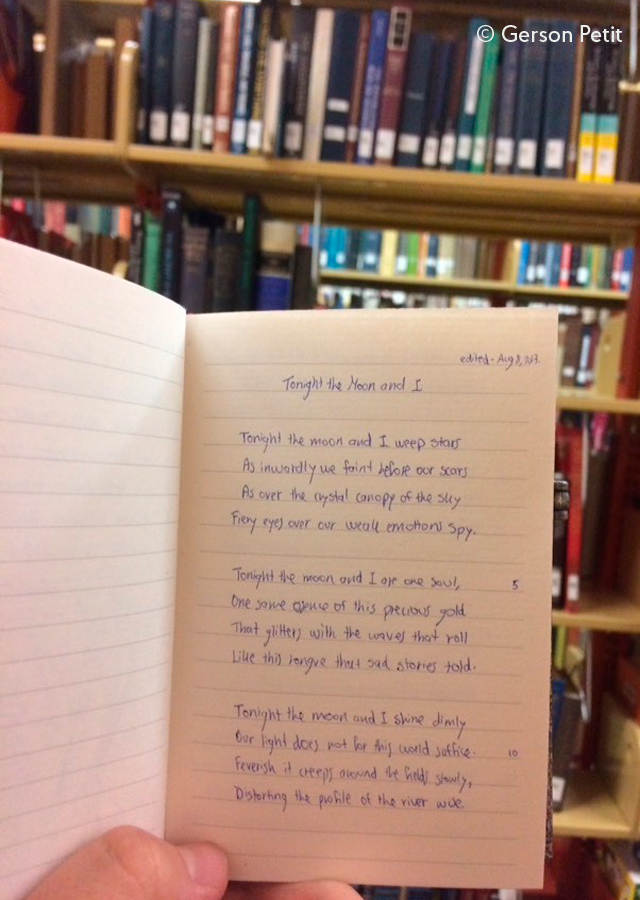 © Gerson Petit
edited - Aug 8, 2017.
Tonight the Moon and I
Tonight the moon and I weep stars
As inwardly we faint before our scars
As over the crystal canopy of the sky
Fiery eyes over our weak emotions spy.
Tonight the moon and I are one soul, 5
One same essence of this precious gold
That glitters with the waves that roll
Like this tongue that sad stories told.
Tonight the moon and I shine dimly
Our light does not for this world suffice. 10
Feverish it creeps around the fields slowly,
Distorting the profile of the river wide